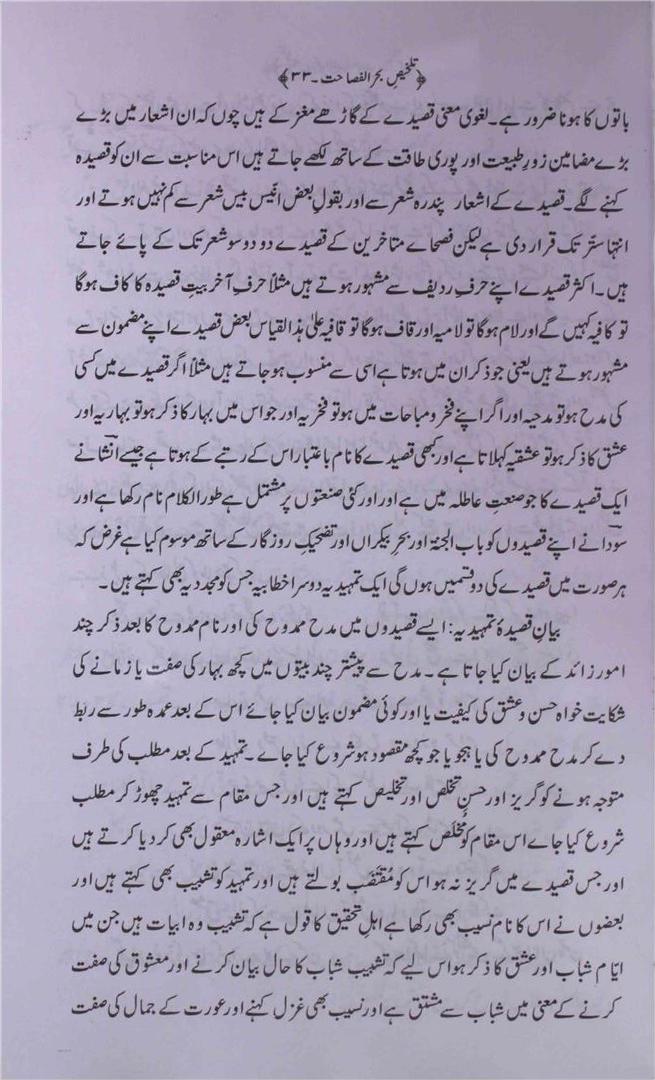 ﴿تلخیصِ بحر الفصاحت۔۳۳﴾
باتوں کا ہونا ضرور ہے۔ لغوی معنی قصیدے کے گاڑھے مغز کے ہیں چوں کہ ان اشعار میں بڑے
بڑے مضامین زورِ طبیعت اور پوری طاقت کے ساتھ لکھے جاتے ہیں اس مناسبت سے ان کو قصیدہ
کہنے لگے۔ قصیدے کے اشعار پندرہ شعر سے اور بقولِ بعض انّیس بیس شعر سے کم نہیں ہوتے اور
انتہا ستّر تک قرار دی ہے لیکن فصحاے متاخرین کے قصیدے دو دو سو شعر تک کے پائے جاتے
ہیں۔ اکثر قصیدے اپنے حرفِ ردیف سے مشہور ہوتے ہیں مثلاً حرفِ آخر بیتِ قصیدہ کا کاف ہوگا
تو کافیہ کہیں گے اور لام ہوگا تو لامیہ اور قاف ہوگا تو قافیہ علیٰ ہٰذا القیاس بعض قصیدے اپنے مضمون سے
مشہور ہوتے ہیں یعنی جو ذکر ان میں ہوتا ہے اسی سے منسوب ہو جاتے ہیں مثلاً اگر قصیدے میں کسی
کی مدح ہو تو مدحیہ اور اگر اپنے فخر و مباحات میں ہو تو فخریہ اور جو اس میں بہار کا ذکر ہو تو بہاریہ اور
عشق کا ذکر ہو تو عشقیہ کہلاتا ہے اور کبھی قصیدے کا نام باعتبار اس کے رتبے کے ہوتا ہے جیسے انشا نے
ایک قصیدے کا جو صنعتِ عاطلہ میں ہے اور اور کئی صنعتوں پر مشتمل ہے طور الکلام نام رکھا ہے اور
سودا نے اپنے قصیدوں کو باب الجنۃ اور بحرِ بیکراں اور تضحیکِ روزگار کے ساتھ موسوم کیا ہے غرض کہ
ہر صورت میں قصیدے کی دو قسمیں ہوں گی ایک تمہیدیہ دوسرا خطابیہ جس کو مجددیہ بھی کہتے ہیں۔
بیانِ قصیدۂ تمہیدیہ: ایسے قصیدوں میں مدح ممدوح کی اور نام ممدوح کا بعد ذکر چند
امور زائد کے بیان کیا جاتا ہے۔ مدح سے پیشتر چند بیتوں میں کچھ بہار کی صفت یا زمانے کی
شکایت خواہ حسن و عشق کی کیفیت یا اور کوئی مضمون بیان کیا جائے اس کے بعد عمدہ طور سے ربط
دے کر مدح ممدوح کی یا ہجو یا جو کچھ مقصود ہو شروع کیا جاے۔ تمہید کے بعد مطلب کی طرف
متوجہ ہونے کو گریز اور حسنِ تخلص اور تخلیص کہتے ہیں اور جس مقام سے تمہید چھوڑ کر مطلب
شروع کیا جاے اس مقام کو مُخلَص کہتے ہیں اور وہاں پر ایک اشارہ معقول بھی کر دیا کرتے ہیں
اور جس قصیدے میں گریز نہ ہو اس کو مُقتَضَب بولتے ہیں اور تمہید کو تشبیب بھی کہتے ہیں اور
بعضوں نے اس کا نام نسیب بھی رکھا ہے اہلِ تحقیق کا قول ہے کہ تشبیب وہ ابیات ہیں جن میں
ایّامِ شباب اور عشق کا ذکر ہو اس لیے کہ تشبیب شباب کا حال بیان کرنے اور معشوق کی صفت
کرنے کے معنی میں شباب سے مشتق ہے اور نسیب بھی غزل کہنے اور عورت کے جمال کی صفت